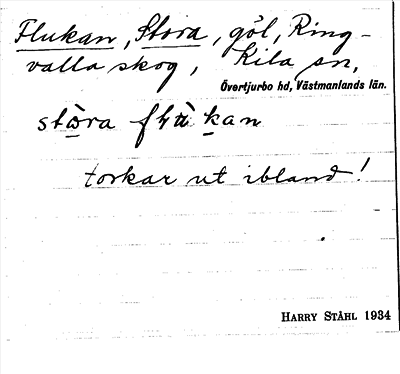 Flukan, Stora, göl, Ring-
valla skog, Kila sn,
Övertjurbo hd, Västmanlands län.
stòra flʉ̀kan
torkar ut ibland!
HARRY STÅHL 1934